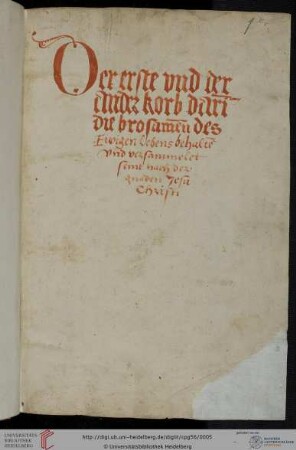 Der erste vnd der
ander korb dariñ
die brosameñ des
Ewigen lebens behaltē
vnd versammelet
seint nach der
gnaden Jesu
Christi
UNIVERSITÄTS-
BIBLIOTHEK
HEIDELBERG
http://digi.ub.uni-heidelberg.de/diglit/cpg56/0005
© Universitätsbibliothek Heidelberg